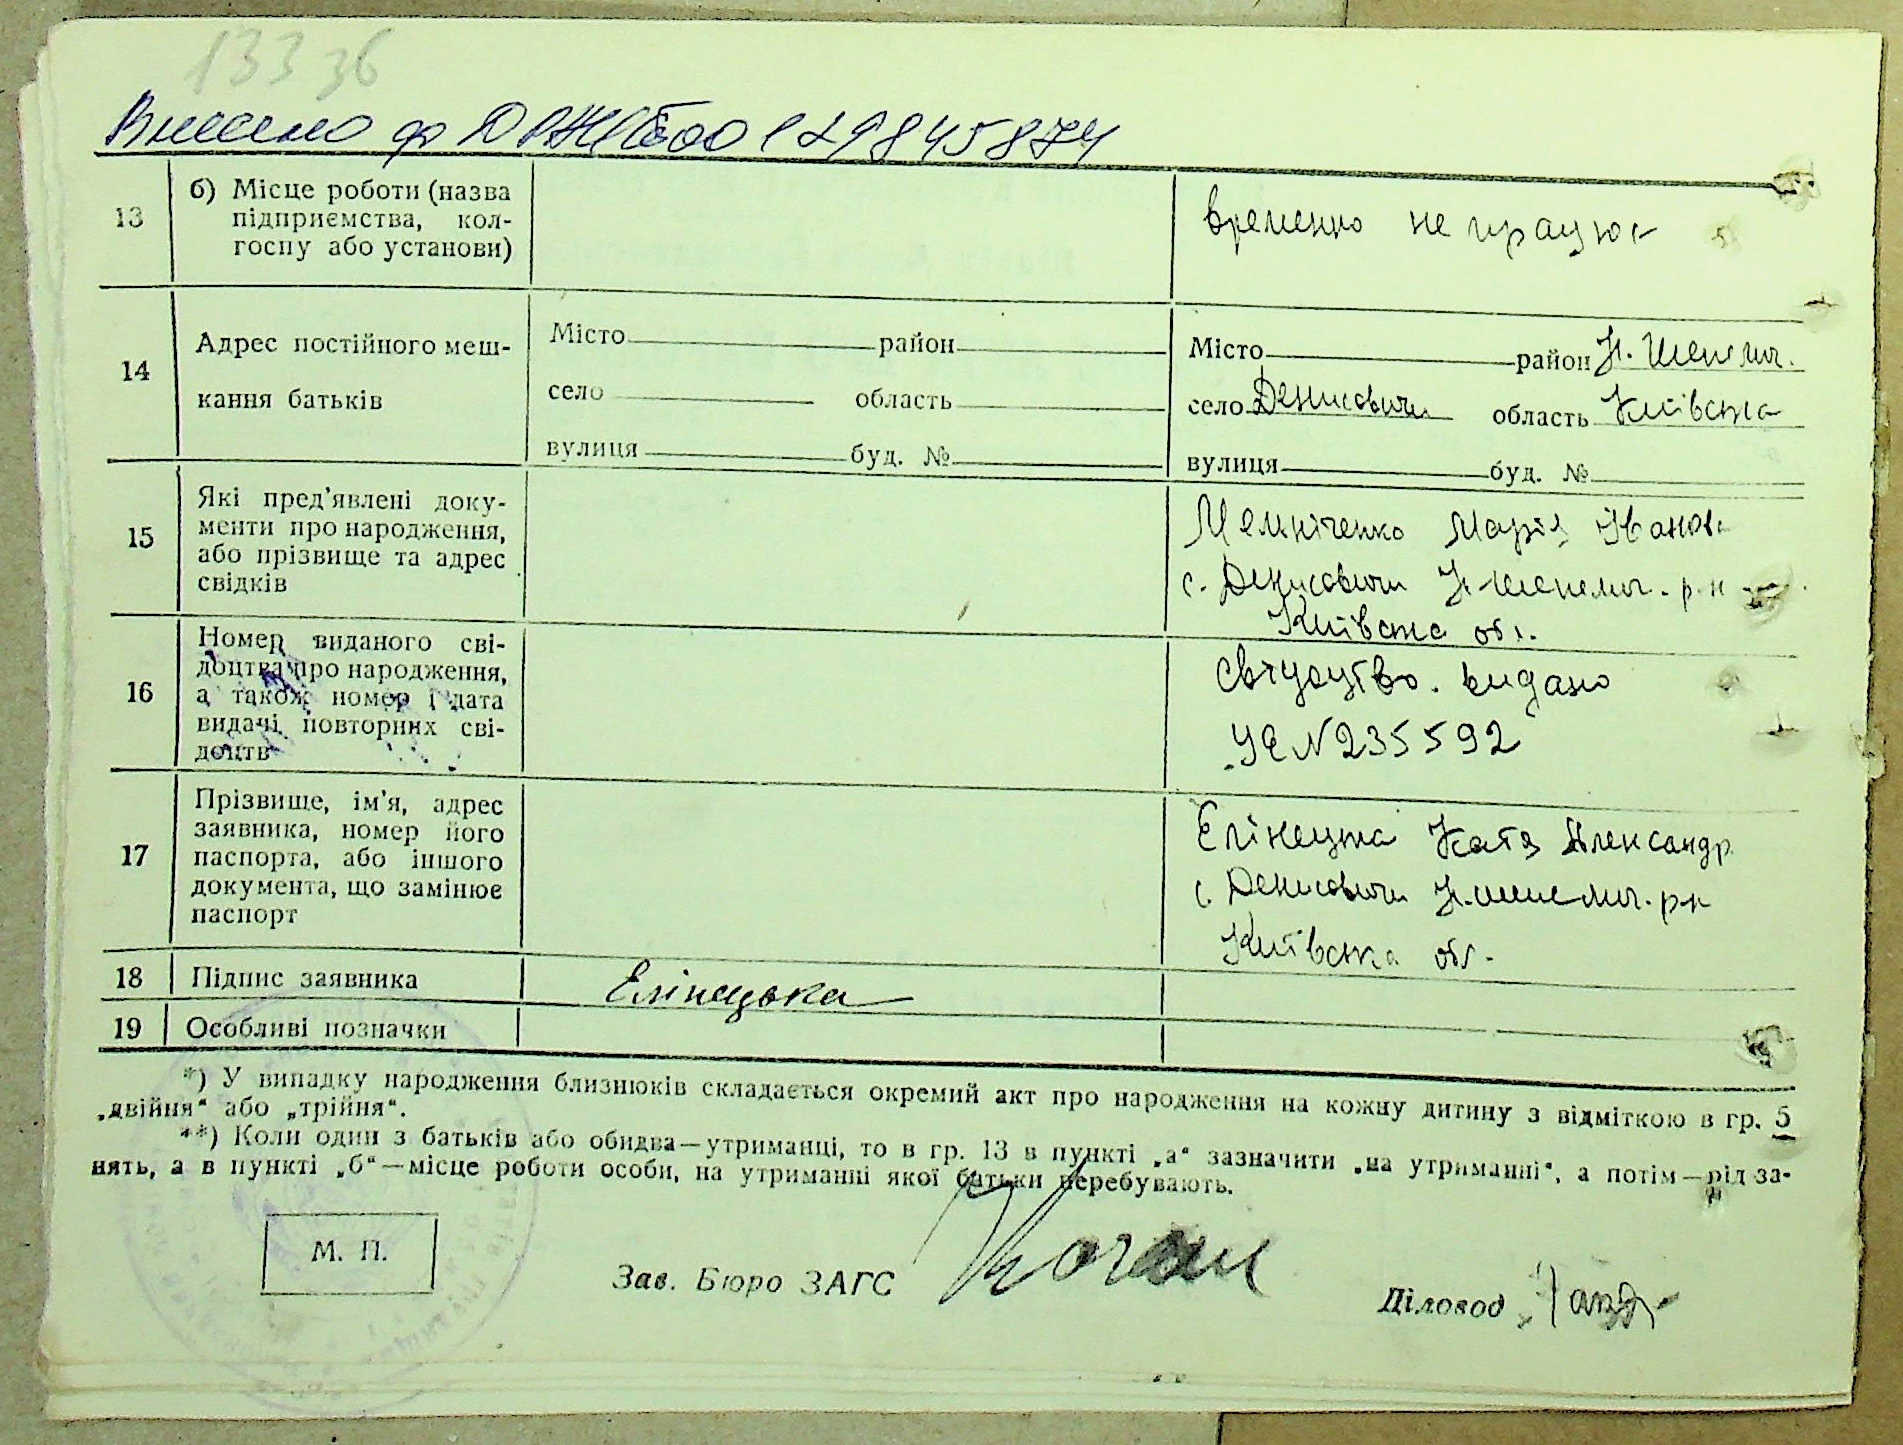 13336
Внесено до ДРАЦСГ 00129845874
13
б) Місце роботи (назва
підприємства, кол-
госпу або установи)
временно не працює
14
Адрес постійного меш-
кання батьків
Місто район
село область
вулиця буд. №
Місто район Н. Шепелич.
село Денисовичи область Київська
вулиця буд. №
15
Які пред'явлені доку-
менти про народження,
або прізвище та адрес
свідків
Марія Іванова
с. Денисовичи Н-шепелич. р-н
Київська обл.
16
Номер виданого сві-
доцтва про народження,
а також номер і дата
видачі повторних сві-
доцтв
свідоцтво видано
УЄ N 235592
17
Прізвище, ім'я, адрес
заявника, номер його
паспорта, або іншого
документа, що замінює
паспорт
Єлінецька Катя Александр
с. Денисовичи Н.шепелич. р-н
Київська обл.
18
Підпис заявника
Єлінецька
19
Особливі позначки
*) У випадку народження близнюків складається окремий акт про народження на кожну дитину з відміткою в гр. 5
„двійня“ або „трійня“.
**) Коли один з батьків або обидва—утриманці, то в гр. 13 в пункті „а“ зазначити „на утриманні“, а потім—рід за-
нять, а в пункті „б“—місце роботи особи, на утриманні якої батьки перебувають.
М. П.
Зав. Бюро ЗАГС Коган
Діловод